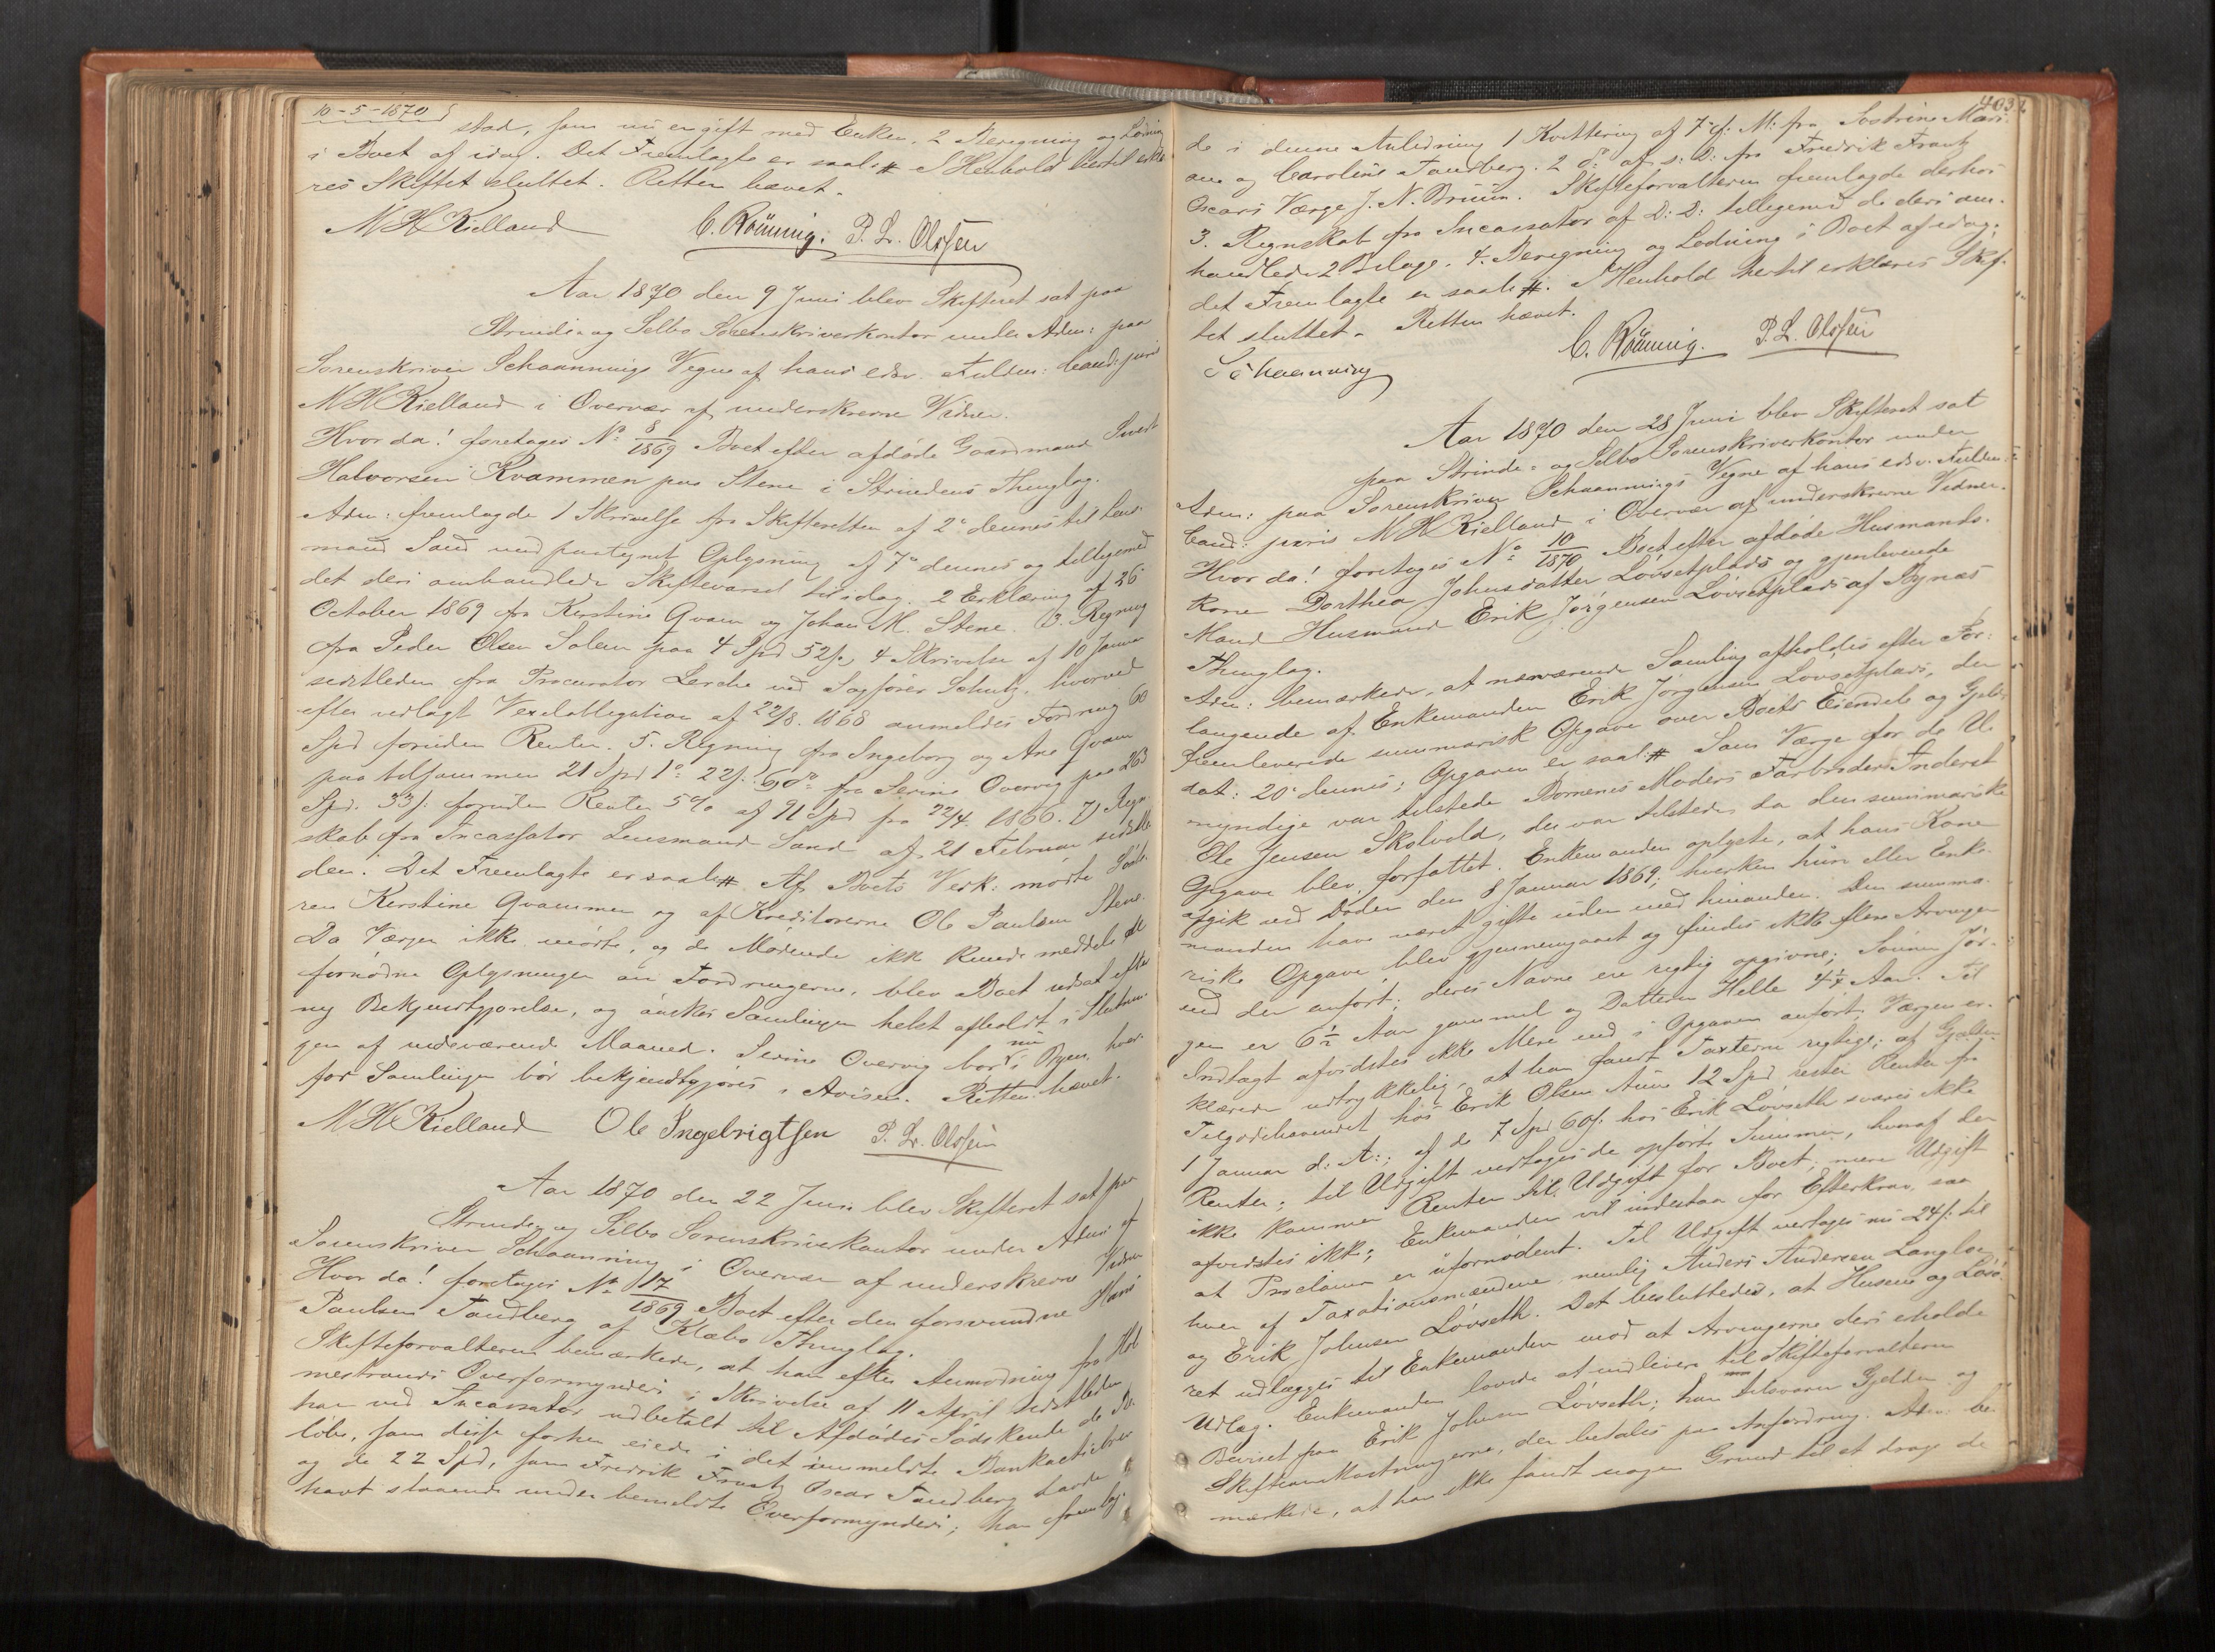 10-5-1870
stad, som nu er gift med Enken. 2 Beregning og Lodning
i Boet af idag. Det Fremlagte er saal: # I Henhold hertil erklæ
res Skiftet sluttet. Retten hævet.
M H Kielland C. Rönning. P. L. Olssen
Aar 1870 den 9 Juni blev Skifteret sat paa
Strinde- og Selbo Sorenskriverkontor under Adm: paa
Sorenskriver Schaannings Vegne af hans edsv. Fuldm: Cand: juris
M H Kielland i Overvær af underskrevne Vidner.
Hvor da! foretoges No 8/1869 Boet efter afdøde Gaardmand Sivert
Halvorsen Kvammen paa Stene i Strindens Thinglag.
Adm: fremlagde 1 Skrivelse fra Skifteretten af 2 dennes til Lens-
mand Sand med paategnet Oplysning af 7 dennes og tilligemed
det deri omhandlede Skiftevarsel til idag. 2 Erklæring af 26
October 1869 fra Kerstine Qvam og Johan M. Stene. 3. Regning
fra Peder Olsen Solem paa 4 Spd 52 s, 4 Skrivelse af 10 Januar
sidstleden fra Procurator Lerche ved Sagfører Schulz, hvorved
efter vedlagt Vexelobligation af 22/8. 1868 anmeldes Fordring 60
Spd foruden Renter. 5. Regning fra Ingeborg og Ane Qvam
paa tilsammen 21 Spd 1 o: 22 s. 6 do fra Serine Overvig paa 263
Spd. 33 s: foruden Renter 5 % af 91 Spd fra 22/4 1866. 7) Regn-
skab fra Incassator Lensmand Sand af 21 Februar sidstle-
den. Det Fremlagte er saal: # Af Boets Vedk: mødte
ren Kerstine Qvammen og af Kreditorerne Ole Paulsen Stene.
Da Værgen ikke mødte, og de Mødende ikke kunde meddele de
fornødne Oplysninger om Fordringerne, blev Boet udsat efter
ny Bekjendtgjørelse, og ønskes Samlingen helst afholdt i Slutnin-
gen af indeværende Maaned. Serine Overvig bor nu i Byen, hvor-
for Samlingen bør bekjendtgjøres i Avisen. Retten hævet.
M H Kielland Ole Ingebrigtsen P. L. Olssen
Aar 1870 den 22 Juni blev Skifteret sat paa
Strinde- og Selbo Sorenskriverkontor under Adm: af
Sorenskriver Schaanning i Overvær af underskrevne Vidner
Hvor da! foretoges No 17/1869 Boet efter den forsvundne Hans
Paulsen Tandberg af Klæbo Thinglag.
Skifteforvalteren bemærkede, at han efter Anmodning fra Hol-
mestrands Overformynderi i Skrivelse af 11 April sidstleden
har ved Incassator udbetalt til Afdødes Sødskende de Be-
løbe, som disse forhen eiede i det immeldte Bankactiebrev
og de 22 Spd, som Fredrik Frantz Oscar Tandberg havde
havt staaende under bemeldte Overformynderi; han fremlag-
403
de i denne Anledning 1 Kvittering af 7 f: M: fra Sostrine Mari-
ane og Caroline Tandberg. 2 do af s: D: fra Fredrik Frantz
Oscars Værge J. N. Bruun. Skifteforvalteren fremlagde derhos
3. Regnskab fra Incassator af D: D: tilligemed de deri om-
handlede 2 Bilage. 4. Beregning og Lodning i Boet af idag;
det Fremlagte er saal: #. I Henhold hertil erklæres Skif-
tet sluttet. Retten hævet.
Schaanning C. Rönning. P. L. Olssen
Aar 1870 den 28 Juni blev Skifteret sat
paa Strinde- og Selbo Sorenskriverkontor under
Adm: paa Sorenskriver Schaannings Vegne af hans edsv. Fuldm:
Cand: juris M H Kielland i Overvær af underskrevne Vidner.
Hvor da! foretoges No 10/1870 Boet efter afdøde Husmands-
kone Dorthea Johnsdatter Lövsetplads og gjenlevende
Mand Husmand Erik Jørgensen Lövsetplads af Bynæs
Thinglag.
Adm: bemærkede, at nærværende Samling afholdes efter For-
langende af Enkemanden Erik Jørgensen Lövsetplads, der
fremleverede summarisk Opgave over Boets Eiendele og Gjeld
dat: 20 dennes; Opgaven er saal: # Som Værge for de U-
myndige var tilstede Børnenes Moders Farbroder Inderst
Ole Jensen Skolvold, der var tilstede, da den summariske
Opgave blev forfattet. Enkemanden oplyste, at hans Kone
afgik ved Døden den 8 Januar 1869; hverken hun eller Enke-
manden have været gifte uden med hinanden. Den summa-
riske Opgave blev gjennemgaaet og findes ikke flere Arvinger
end der anført; deres Navne ere rigtig opgivne; Sønnen Jør-
gen er 6½ Aar gammel og Datteren Helle 4¼ Aar. Til
Indtægt afvidstes ikke Mere end i Opgaven anført; Værgen er-
klærede udtrykkelig, at han fandt Taxterne rigtige; af Gjælden
Tilgodehavendet hos Erik Olsen Aune 12 Spd, rester Renter fra
1 Januar d: A:; af de 7 Spd 60 s. hos Erik Lövseth svares ikke
Renter; til Udgift vedtoges de opførte Summer, hvoraf der
ikke kommer Renter til Udgift for Boet; mere Udgift
afvidstes ikke; Enkemanden vil indestaa for Efterkrav, saa
at Proclama er ufornødent. Til Udgift vedtoges nu 24 s: til
hver af Taxationsmændene, nemlig Anders Andersen Langlo
og Erik Johnsen Lövseth. Det besluttedes, at Husene og Løsø-
ret udlægges til Enkemanden mod at Arvingerne deri erholde
Udlæg. Enkemanden lovede at indlevere til Skifteforvalteren
Beviset paa Erik Johnsen Lövseth; han tilsvarer Gjelden og
Skifteomkostningerne, der betales paa Anfordring. Adm: be-
mærkede, at han ikke fandt nogen Grund til at drage de